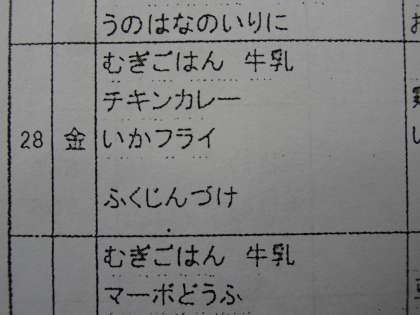 うのはなのいりに
むぎごはん 牛乳
チキンカレー
28 金 いかフライ
ふくじんづけ
むぎごはん 牛乳
マーボどうふ